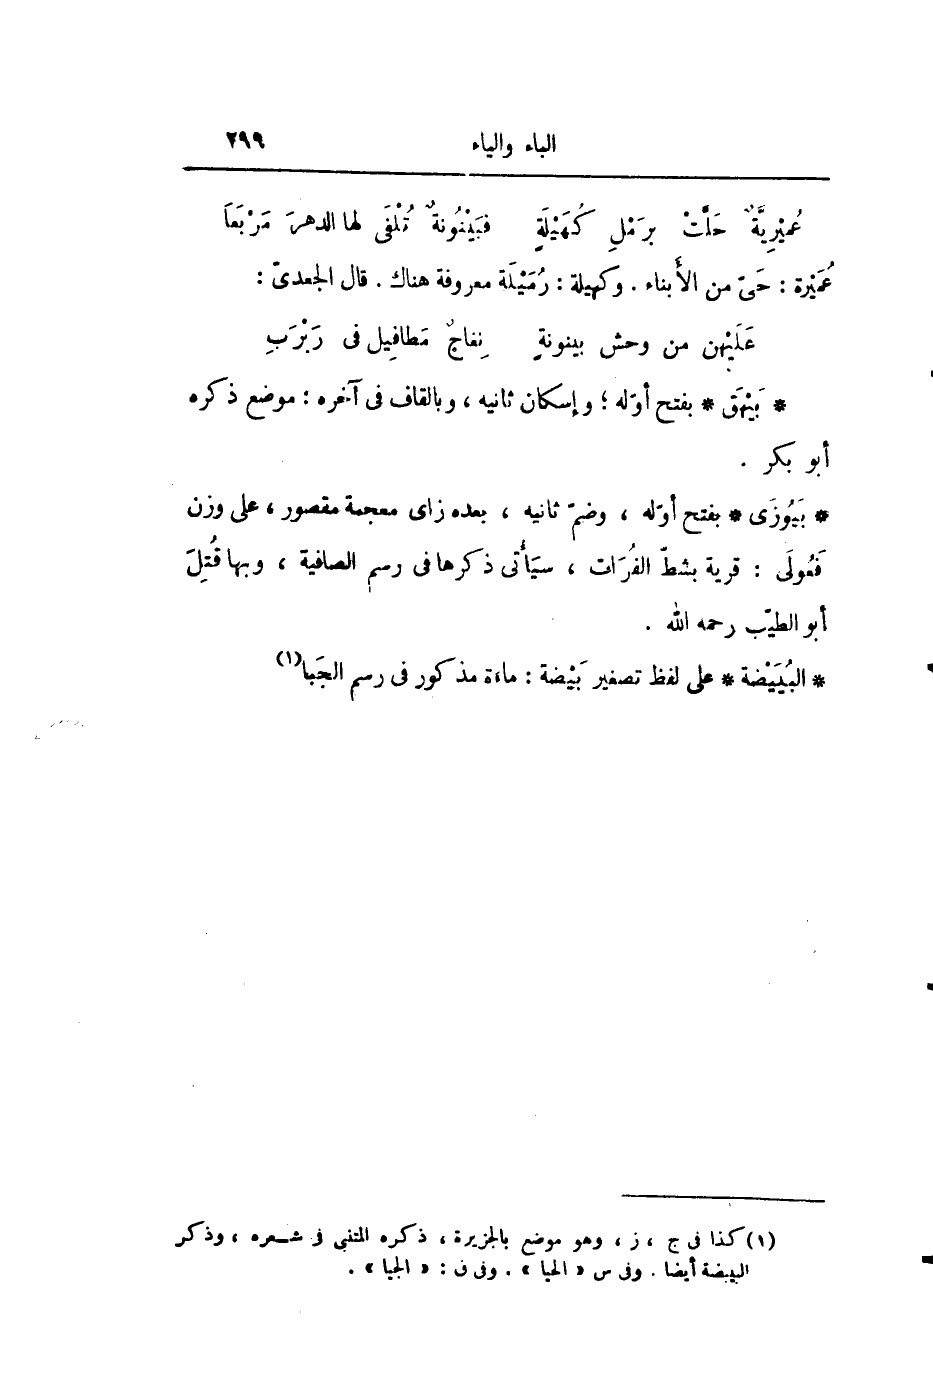 الباء والياء ٢٩٩
عُمَيْرِيَّةٌ حَلَّتْ برَمْلِ كُهَيْلَةٍ فبَيْنُونةٌ تُلْفَى لها الدهرَ مَرْبَعَا
عُمَيْرة : حَىّ من الأبناء . وكهيلة : رُمَيْلَة معروفة هناك . قال الجعدىّ :
عَلَيْهن من وحش بينونةٍ نِعاجٌ مَطافِيل فى رَبْرَبِ
* بَيْهَق * بفتح أوّله ؛ وإسكان ثانيه ، وبالقاف فى آخره : موضع ذكره
أبو بكر .
* بَيُوزَى * بفتح أوّله ، وضمّ ثانيه ، بعده زاى معجمة مقصور ، على وزن
فَعُولَى : قرية بشطّ الفُرَات ، سيَأْتى ذكرها فى رسم الصافية ، وبها قُتِلَ
أبو الطيّب رحمه الله .
* البُيَيْضة * على لفظ تصغير بَيْضة : ماءة مذكور فى رسم الجَبا(١)
(١) كذا فى ج ، ز ، وهو موضع بالجزيرة ، ذكره المتنبى فى شعره ، وذكر
البيضة أيضا . وفى س « الحيا » . وفى ق : « الجيا » .